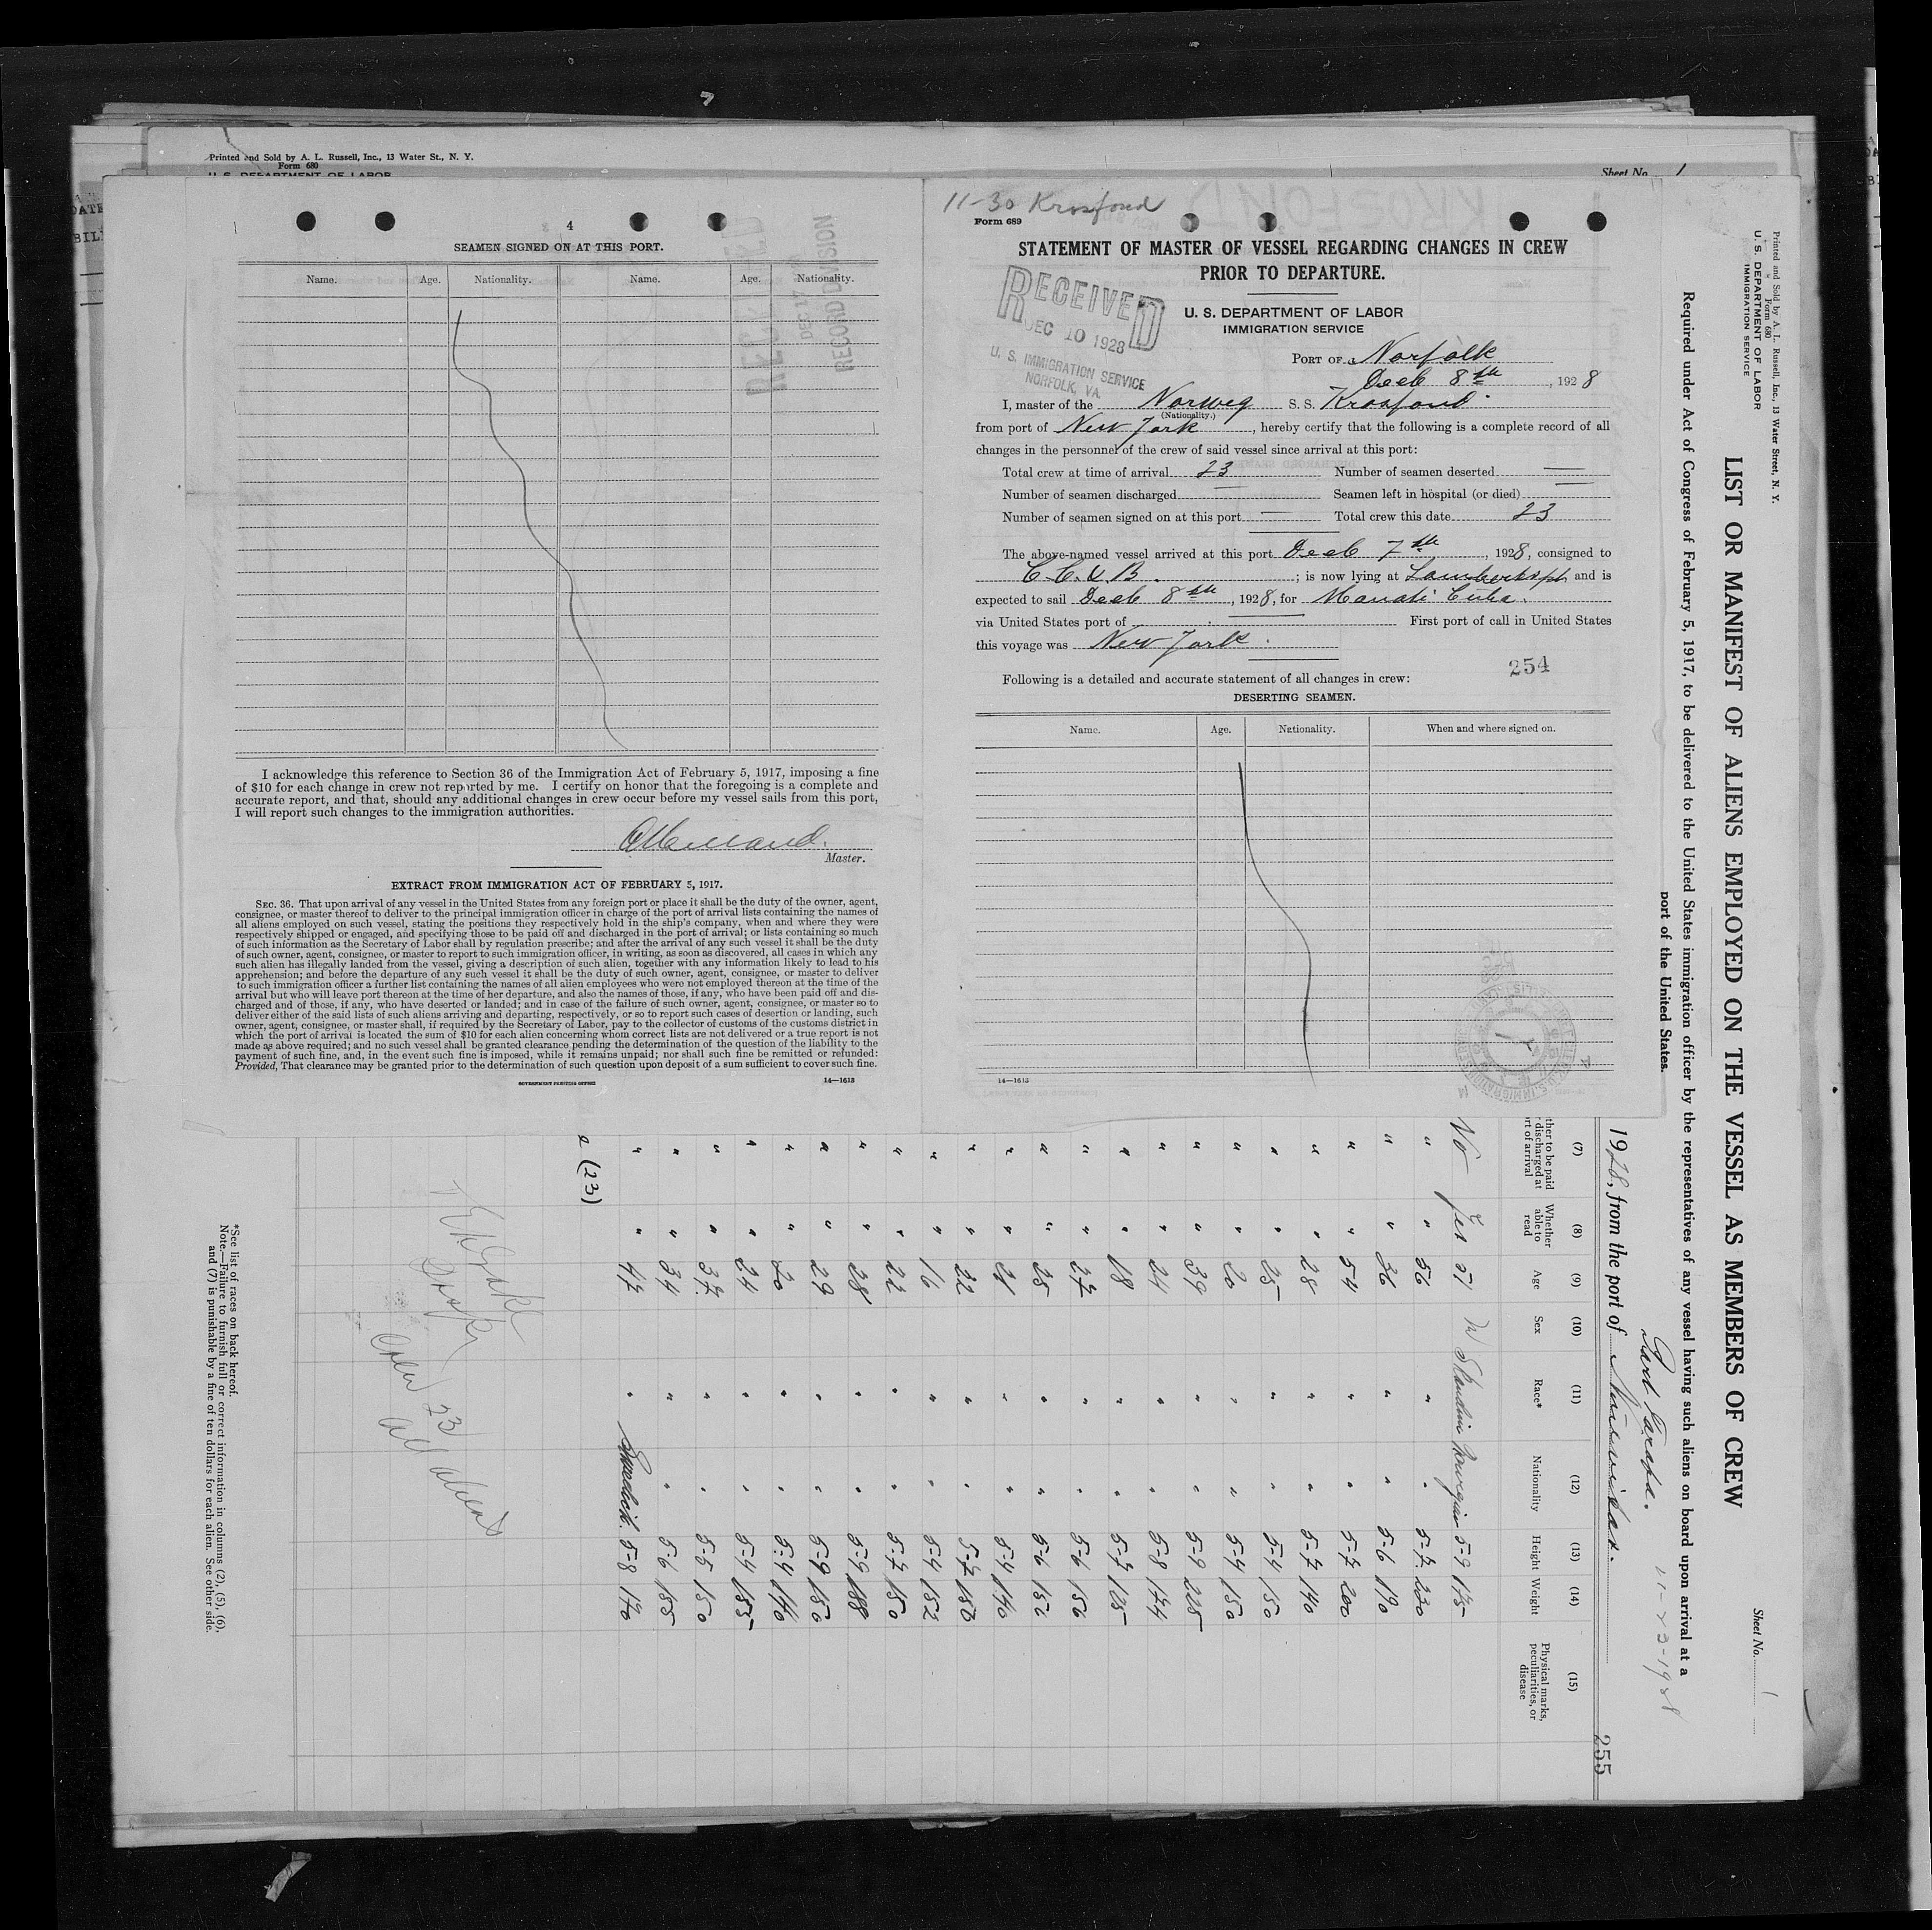 Printed and Sold by A. L. Russell, Inc., 13 Water St., N. Y.
Form 680
U. S. DEPARTMENT OF LABOR
Sheet No. 1
4
SEAMEN SIGNED ON AT THIS PORT.
Name. Age. Nationality. Name. Age. Nationality.
RECORD DIVISION
I acknowledge this reference to Section 36 of the Immigration Act of February 5, 1917, imposing a fine
of $10 for each change in crew not reported by me. I certify on honor that the foregoing is a complete and
accurate report, and that, should any additional changes in crew occur before my vessel sails from this port,
I will report such changes to the immigration authorities.
Master.
EXTRACT FROM IMMIGRATION ACT OF FEBRUARY 5, 1917.
SEC. 36. That upon arrival of any vessel in the United States from any foreign port or place it shall be the duty of the owner, agent,
consignee, or master thereof to deliver to the principal immigration officer in charge of the port of arrival lists containing the names of
all aliens employed on such vessel, stating the positions they respectively hold in the ship's company, when and where they were
respectively shipped or engaged, and specifying those to be paid off and discharged in the port of arrival; or lists containing so much
of such information as the Secretary of Labor shall by regulation prescribe; and after the arrival of any such vessel it shall be the duty
of such owner, agent, consignee, or master to report to such immigration officer, in writing, as soon as discovered, all cases in which any
such alien has illegally landed from the vessel, giving a description of such alien, together with any information likely to lead to his
apprehension; and before the departure of any such vessel it shall be the duty of such owner, agent, consignee, or master to deliver
to such immigration officer a further list containing the names of all alien employees who were not employed thereon at the time of the
arrival but who will leave port thereon at the time of her departure, and also the names of those, if any, who have been paid off and dis-
charged and of those, if any, who have deserted or landed; and in case of the failure of such owner, agent, consignee, or master so to
deliver either of the said lists of such aliens arriving and departing, respectively, or so to report such cases of desertion or landing, such
owner, agent, consignee, or master shall, if required by the Secretary of Labor, pay to the collector of customs of the customs district in
which the port of arrival is located the sum of $10 for each alien concerning whom correct lists are not delivered or a true report is not
made as above required; and no such vessel shall be granted clearance pending the determination of the question of the liability to the
payment of such fine, and, in the event such fine is imposed, while it remains unpaid; nor shall such fine be remitted or refunded:
Provided, That clearance may be granted prior to the determination of such question upon deposit of a sum sufficient to cover such fine.
GOVERNMENT PRINTING OFFICE 14—1613
11-30 Krosfond
Form 689
STATEMENT OF MASTER OF VESSEL REGARDING CHANGES IN CREW
PRIOR TO DEPARTURE.
RECEIVED
DEC 10 1928
U. S. IMMIGRATION SERVICE
NORFOLK, VA.
U. S. DEPARTMENT OF LABOR
IMMIGRATION SERVICE
PORT OF Norfolk
Decb 8th, 1928
I, master of the Norweg S. S. Krosfond
(Nationality.)
from port of New York, hereby certify that the following is a complete record of all
changes in the personnel of the crew of said vessel since arrival at this port:
Total crew at time of arrival 23 Number of seamen deserted —
Number of seamen discharged — Seamen left in hospital (or died) —
Number of seamen signed on at this port — Total crew this date 23
The above-named vessel arrived at this port Decb 7th, 1928, consigned to
C. C. & B. ; is now lying at Lambertspt and is
expected to sail Decb 8th, 1928, for Manati Cuba.
via United States port of — First port of call in United States
this voyage was New York.
254
Following is a detailed and accurate statement of all changes in crew:
DESERTING SEAMEN.
Name. Age. Nationality. When and where signed on.
14—1613
Printed and Sold by A. L. Russell, Inc., 13 Water Street, N. Y.
Form 680
U. S. DEPARTMENT OF LABOR
IMMIGRATION SERVICE
Sheet No. 1
LIST OR MANIFEST OF ALIENS EMPLOYED ON THE VESSEL AS MEMBERS OF CREW
Required under Act of Congress of February 5, 1917, to be delivered to the United States immigration officer by the representatives of any vessel having such aliens on board upon arrival at a
port of the United States.
11-23-1928
1928, from the port of
255
(7) (8) (9) (10) (11) (12) (13) (14) (15)
ther to be paid discharged at rt of arrival Whether able to read Age Sex Race* Nationality Height Weight Physical marks, peculiarities, or disease
No Yes 57 M Scandin Norwegian 5-9 175
" " 56 " " 5-7 230
" " 36 " " 5-6 190
" " 54 " " 5-7 200
" " 28 " " 5-7 140
" " 25 " " 5-4 150
" " 20 " " 5-4 150
" " 39 " " 5-9 225
" " 24 " " 5-8 174
" " 18 " " 5-7 125
" " 27 " " 5-6 156
" " 25 " " 5-6 156
" " 21 " " 5-4 140
" " 22 " " 5-7 156
" " 16 " " 5-4 152
" " 22 " " 5-7 150
" " 28 " " 5-9 188
" " 29 " " 5-9 150
" " 20 " " 5-4 140
" " 24 " " 5-4 155
" " 37 " " 5-5 150
" " 34 " " 5-6 185
" " 47 " Swedish. 5-8 170
(23)
Crew 23
All aliens
*See list of races on back hereof.
Note.—Failure to furnish full or correct information in columns (2), (5), (6),
and (7) is punishable by a fine of ten dollars for each alien. See other side.